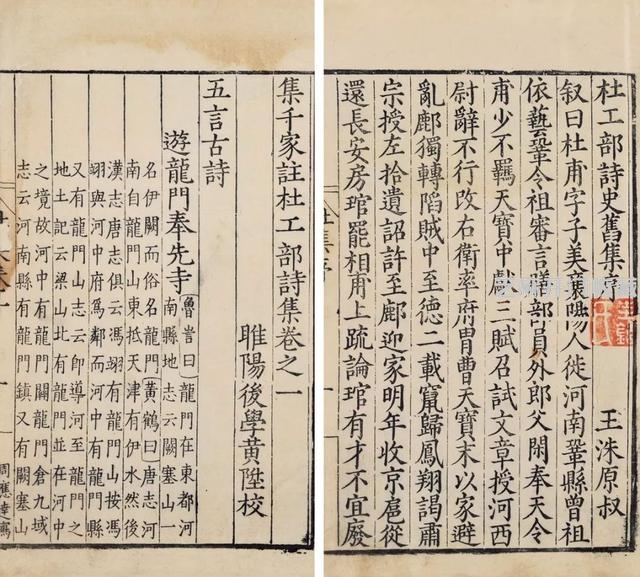 杜工部詩史舊集序
王洙原叔
叙曰杜甫字子美襄陽人徙河南鞏縣曾祖
依藝鞏令祖審言膳部員外郎父閑奉天令
甫少不羈天寶中獻三賦召試文章授河西
尉辭不行改右衛率府冑曹天寶末以家避
亂鄜獨轉陷賊中至德二載竄歸鳳翔謁肅
宗授左拾遺詔許至鄜迎家明年收京扈從
還長安房琯罷相甫上疏論琯有才不宜廢
集千家註杜工部詩集卷之一
睢陽後學黃陞校
五言古詩
遊龍門奉先寺
魯訔曰龍門在東都河
南縣地志云闕塞山一
名伊闕而俗名龍門黃鶴曰唐志河
南自龍門山東抵天津有伊水然後
漢志唐志俱云馮翊有龍門山按馮
翊與河中府為鄰而河中有龍門縣
又有龍門山志云即導河至龍門之
地土記云梁山北有龍門並在河中
之境故河中有龍門關龍門倉九域
志云河南縣有龍門鎮又有闕塞山